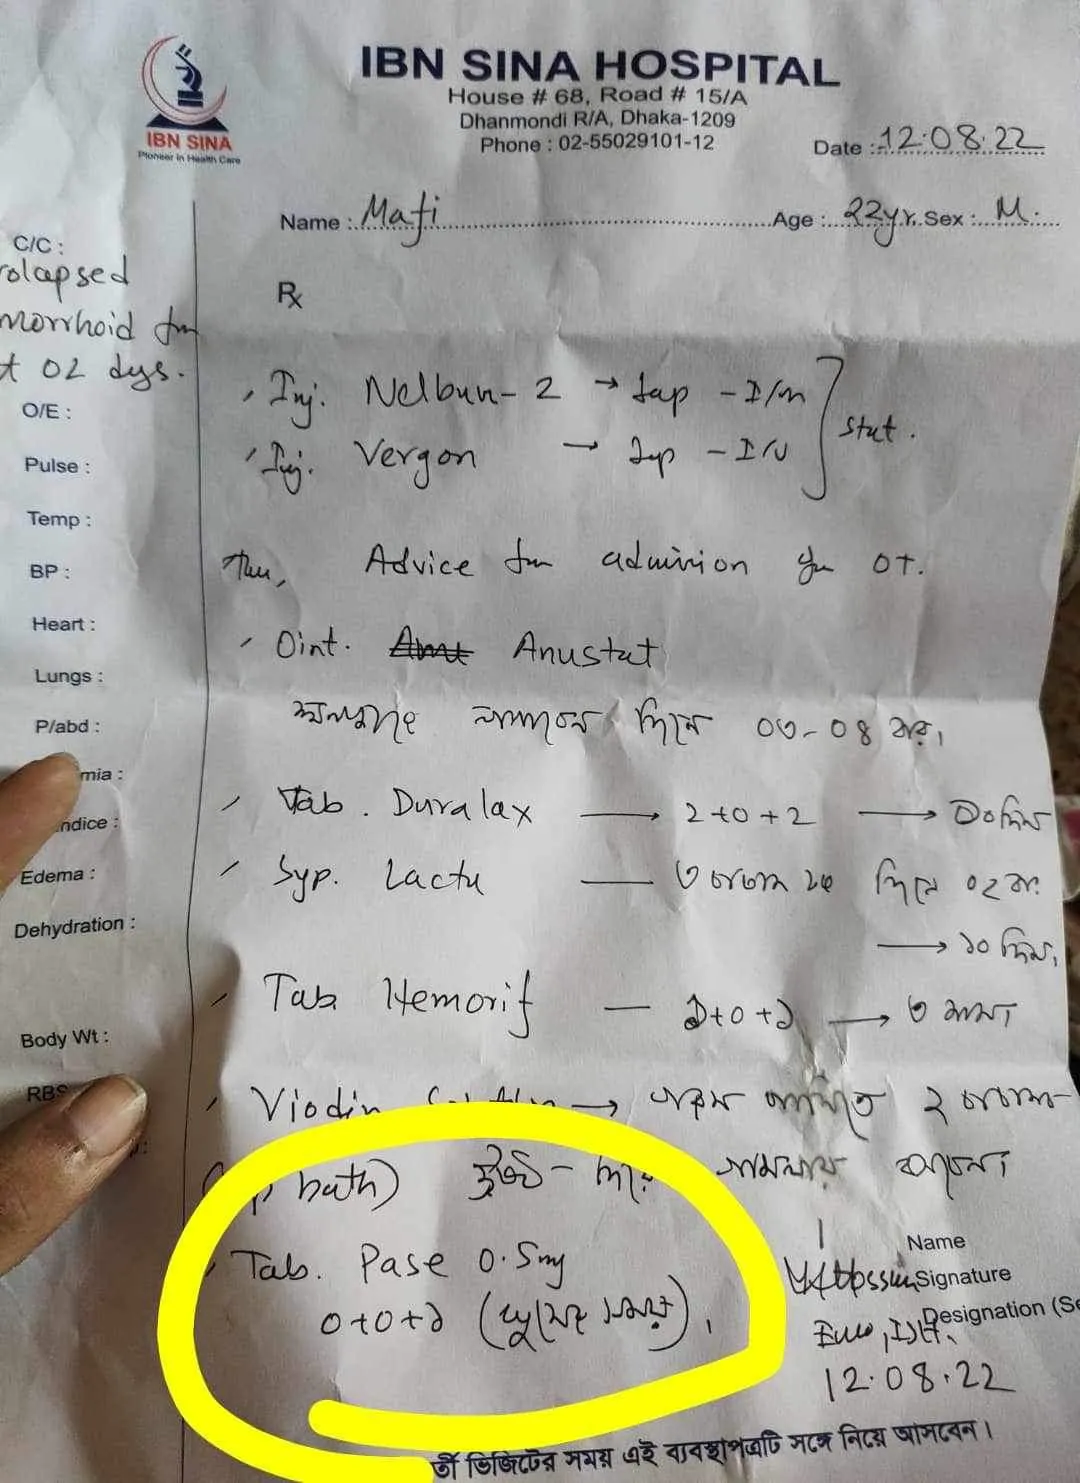 IBN SINA HOSPITAL
House # 68, Road # 15/A
Dhanmondi R/A, Dhaka-1209
Phone : 02-55029101-12
IBN SINA
Pioneer in Health Care
Date : 12.08.22
Name : Mafi Age : 22yr. Sex : M.
C/C :
rolapsed
morrhoid for
t 02 dys.
O/E :
Pulse :
Temp :
BP :
Heart :
Lungs :
P/abd :
mia :
ndice :
Edema :
Dehydration :
Body Wt :
RBS
Rx
Inj. Nelbun-2 → - I/m
Inj. Vergon → - I/V
Stat.
Then, Advice for admission for OT.
Oint. Anustat
দিনে ০৩-০৪ বার।
Tab. Duralax → 2+0+2 →
Syp. Lactu — ৩ চামচ করে দিনে ০২ বার
→ ১০ দিন।
Tab Hemorif — → ৩ মাস।
Viodin → ২ চামচ
bath)
Tab. Pase 0.5mg
0+0+১ (ঘুমের সময়)।
Name
Signature
Designation (Se
12.08.22
র্তী ভিজিটের সময় এই ব্যবস্থাপত্রটি সঙ্গে নিয়ে আসবেন।